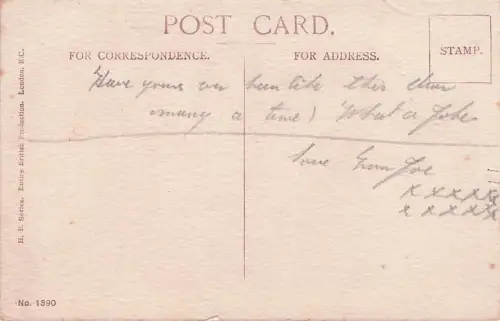 POST CARD.
FOR CORRESPONDENCE.
FOR ADDRESS.
STAMP.
Have yours ever been like this dear
many a time! What a Joke
love from Joe
x x x x x
x x x x x
H. B. Series. Entire British Production. London, E.C.
No. 1390